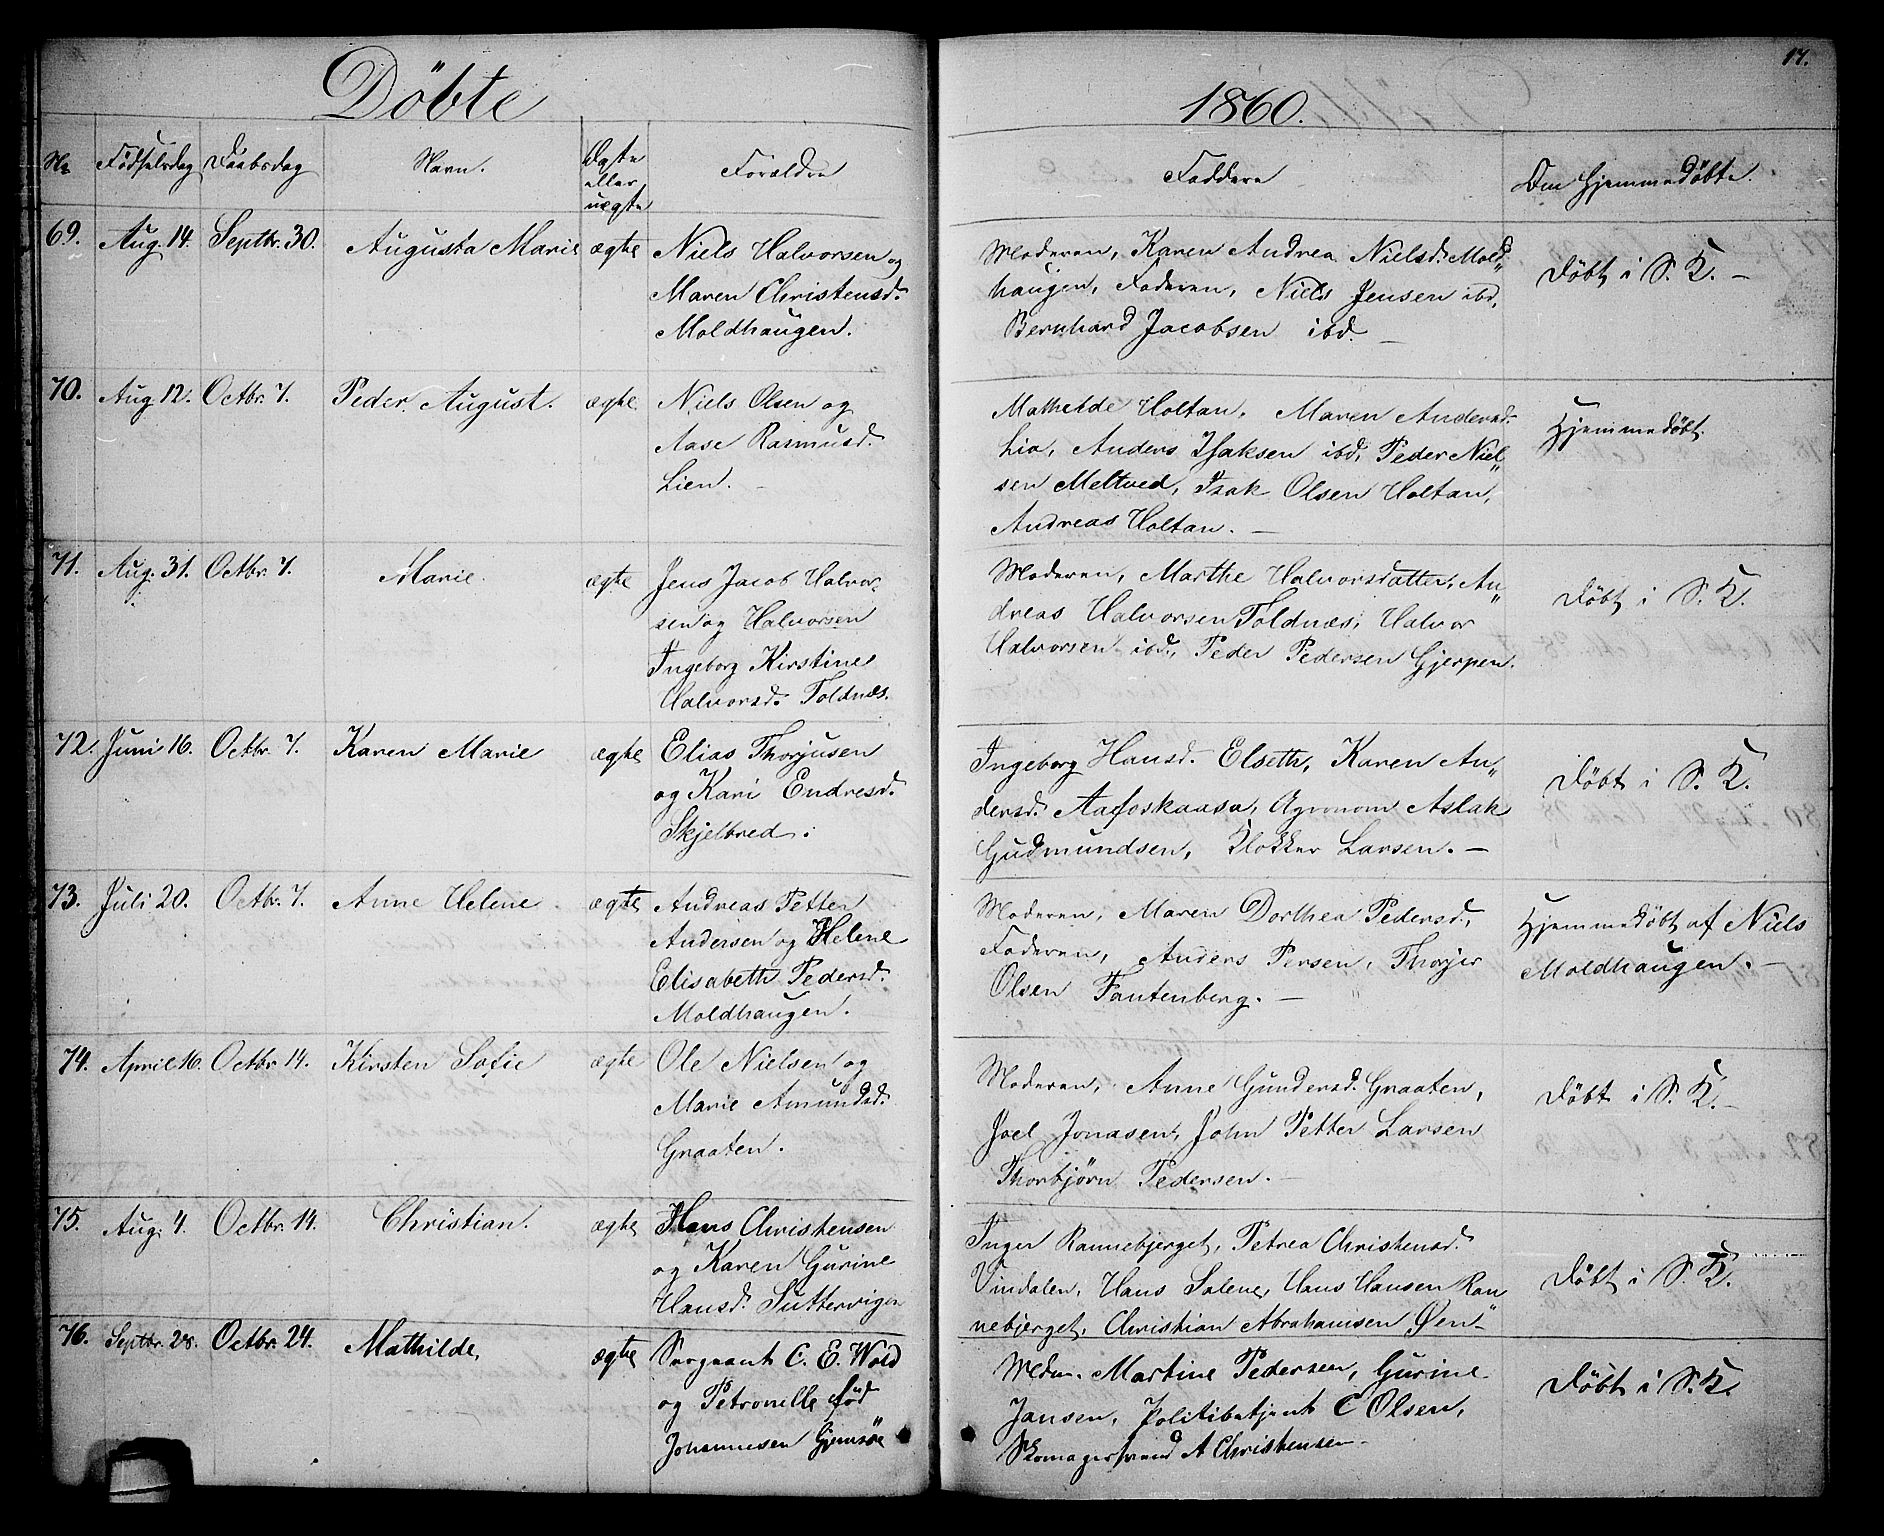 Döbte
1860.
17.
No Födselsdag Daabsdag Navn. Ægte eller uægte Forældre Faddere Om Hjemmedöbte.
69. Aug. 14. Septbr. 30. Augusta Marie ægte Niels Halvorsen og
Maren Christensd.
Moldhaugen.
Moderen, Karen Andrea Nielsd. Mold„
haugen, Faderen, Niels Jensen ibd.
Bernhard Jacobsen ibd. —
Döbt i S. K. —
70. Aug. 12. Octbr. 7. Peder August. ægte Niels Olsen og
Aase Rasmusd.
Lien. —
Mathilde Holtan, Maren Andersd.
Lia, Anders Isaksen ibd, Peder Niel„
sen Meltved, Isak Olsen Holtan,
Andreas Holtan. —
Hjemmedöbt.
71. Aug. 31. Octbr. 7. Marie. ægte Jens Jacob Halvor„
sen og Halvorsen
Ingeborg Kirstine
Halvorsd. Foldnæs.
Moderen, Marthe Halvorsdatter, An„
dreas Halvorsen Foldnæs, Halvor
Halvorsen ibd, Peder Pedersen Gjerpen.
Döbt i S. K.
72. Juni 16. Octbr. 7. Karen Marie ægte Elias Thorjusen
og Kari Endresd.
Skjelbred.
Ingeborg Hansd. Elseth, Karen An„
dersd. Aafoskaasa, Agronom Aslak
Gudmundsen, Klokker Larsen. —
Döbt i S. K.
73. Juli 20. Octbr. 7. Anne Helene ægte Andreas Petter
Andersen og Helene
Elisabeth Pedersd.
Moldhaugen.
Moderen, Maren Dorthea Pedersd.,
Faderen, Anders Persen, Thorjer
Olsen Fantenberg. —
Hjemmedöbt af Niels
Moldhaugen. —
74. April 16. Octbr. 14. Kirsten Sofie ægte Ole Nielsen og
Marie Amundsd.
Graaten.
Moderen, Anne Gundersd. Graaten,
Joel Jonasen, John Petter Larsen
Thorbjørn Pedersen. —
Döbt i S. K. —
75. Aug. 4. Octbr. 14. Christian. ægte Hans Christensen
og Karen Gurine
Hansd. Suttervigen
Inger Rannebjerget, Petrea Christensd.
Vindalen, Hans Solene, Hans Hansen Ran
nebjerget, Christian Abrahamsen Øen„
Döbt i S. K.
76. Septbr. 28. Octbr. 24. Mathilde, ægte Sergeant C. E. Wold
og Petronelle fød
Johannesen Gjemsöe
Mdm. Martine Pedersen, Gurine
Jansen, Politibetjent C Olsen,
Skomagersvend A Christensen
Döbt i S. K.